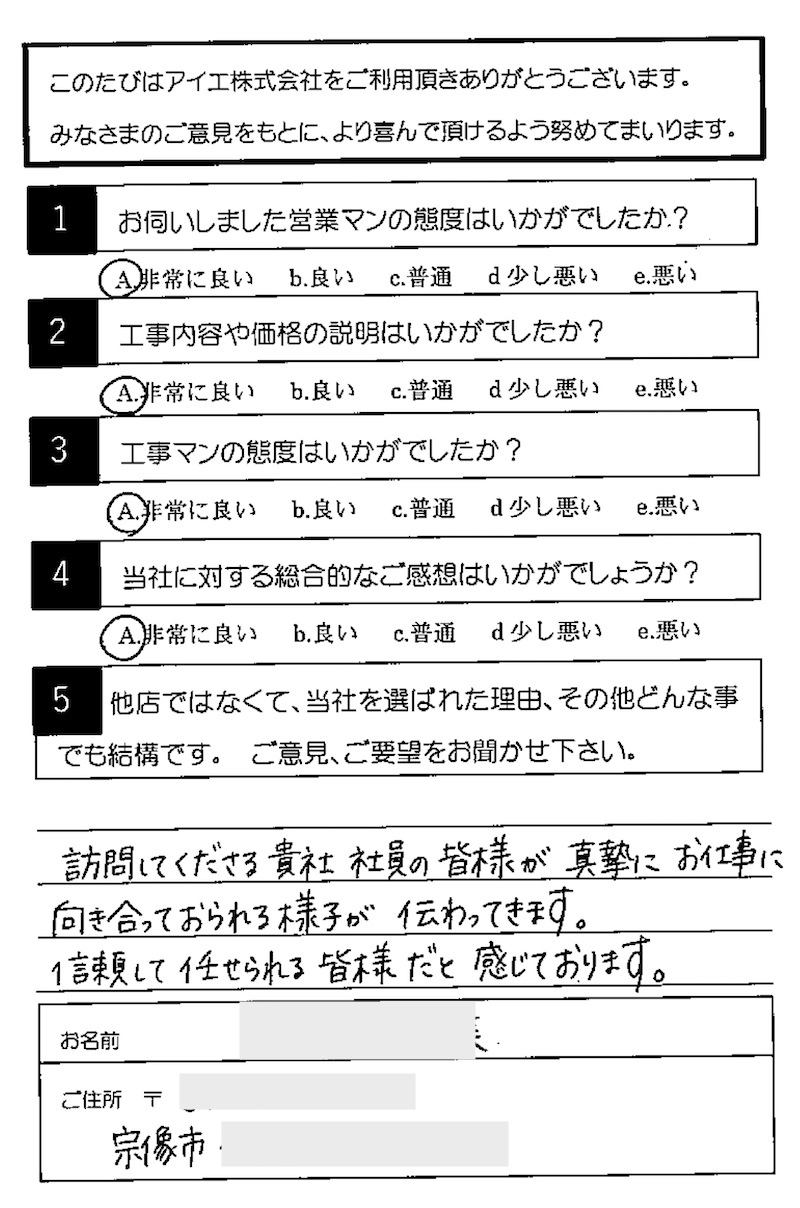 このたびはアイエ株式会社をご利用頂きありがとうございます。
みなさまのご意見をもとに、より喜んで頂けるよう努めてまいります。
1 お伺いしました営業マンの態度はいかがでしたか?
A.非常に良い b.良い c.普通 d 少し悪い e.悪い
2 工事内容や価格の説明はいかがでしたか?
A.非常に良い b.良い c.普通 d 少し悪い e.悪い
3 工事マンの態度はいかがでしたか?
A.非常に良い b.良い c.普通 d 少し悪い e.悪い
4 当社に対する総合的なご感想はいかがでしょうか?
A.非常に良い b.良い c.普通 d 少し悪い e.悪い
5 他店ではなくて、当社を選ばれた理由、その他どんな事
でも結構です。 ご意見、ご要望をお聞かせ下さい。
訪問してくださる貴社 社員の皆様が 真摯に お仕事に
向き合っておられる様子が 伝わってきます。
信頼して任せられる皆様だと 感じております。
お名前
ご住所 〒
宗像市